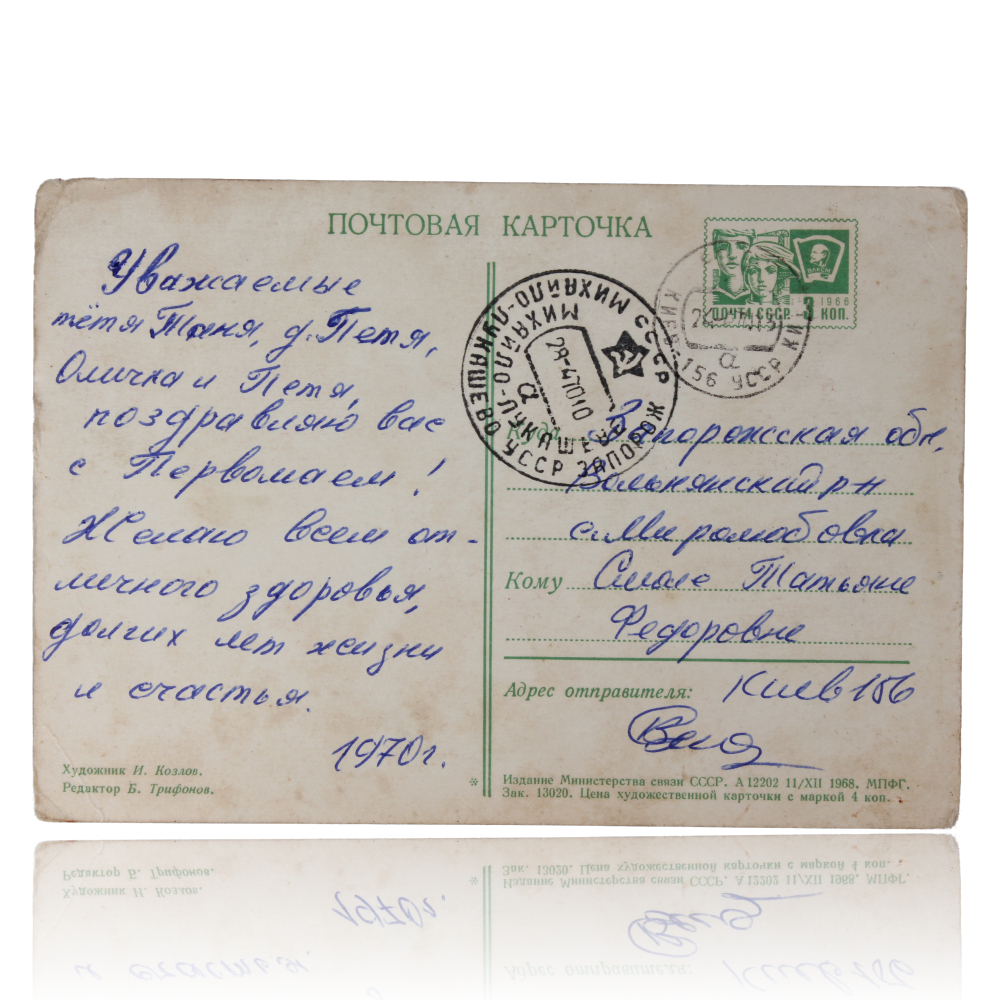 ПОЧТОВАЯ КАРТОЧКА
Уважаемые
тётя Таня, д. Петя,
Оличка и Петя,
поздравляю вас
с Первомаем!
Желаю всем от-
личного здоровья,
долгих лет жизни
и счастья.
1970 г.
Художник И. Козлов.
Редактор Б. Трифонов.
ВЛКСМ
1966
ПОЧТА СССР
3 КОП.
КИЕВ-156 УССР КИ
а
СССР
МИХАЙЛО-ЛУКАШЕВО
УССР ЗАПОРОЖ
МИХАЙЛО-ЛУКАШЕВО
28-47010
а
Куда Запорожская обл,
Вольнянский р-н
с. Миролюбовка
Кому Татьяне
Федоровне
Адрес отправителя: Киев 156
*
Издание Министерства связи СССР. А 12202 11/XII 1968. МПФГ.
Зак. 13020. Цена художественной карточки с маркой 4 коп.